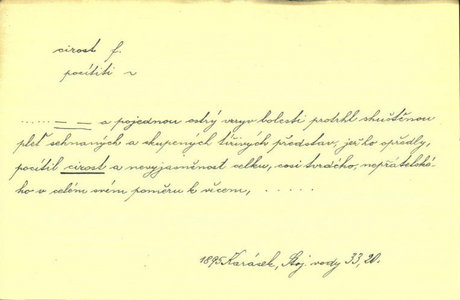 cirost f.
pocítiti v
...... — — a pojednou ostrý vryv bolesti protrhl skuštěnou
pleť sehnaných a skupených tížívých představ, jež ho opředly,
pocítil cirost a nevyjasněnost celku, cosi tvrdého, nepřátelské-
ho v celém svém poměru k věcem, ......
1895 Karásek, Stoj. vody 33, 20.